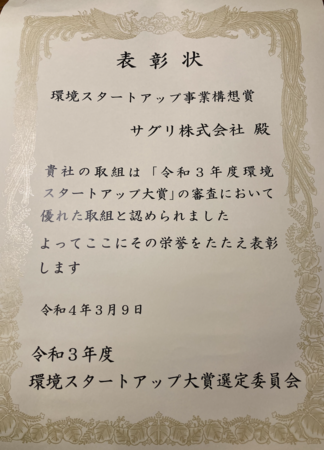 表彰状
環境スタートアップ事業構想賞
サグリ株式会社 殿
貴社の取組は「令和３年度環境
スタートアップ大賞」の審査において
優れた取組と認められました
よってここにその栄誉をたたえ表彰
します
令和４年３月９日
令和３年度
環境スタートアップ大賞選定委員会